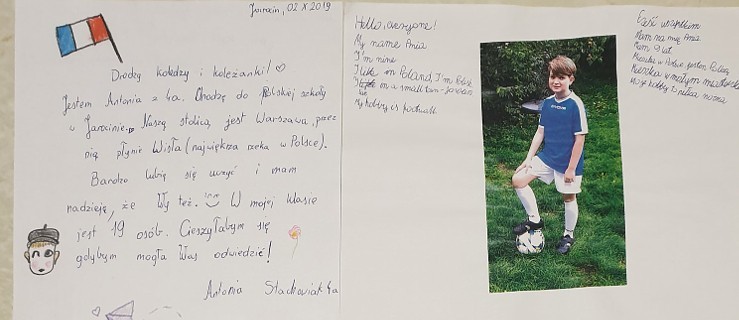 Jarocin, 02 X 2019
Drodzy koledzy i koleżanki!
Jestem Antonia z 4a. Chodzę do Polskiej szkoły
w Jarocinie. Naszą stolicą jest Warszawa, przez
nią płynie Wisła (największa rzeka w Polsce).
Bardzo lubię się uczyć i mam
nadzieję, że Wy też. W mojej klasie
jest 19 osób. Cieszyłabym się
gdybym mogła Was odwiedzić!
Antonia Stachowiak 4a
Hello, everyone!
My name Ania
I'm nine
I in Poland, I'm Polish
I in a small town - Jarocin
My hobby is football
Cześć wszystkim
Mam na imię Ania
Mam 9 lat
Mieszka w Polsce, jestem Polką
Mieszka w małym
Moje hobby to piłka nożna